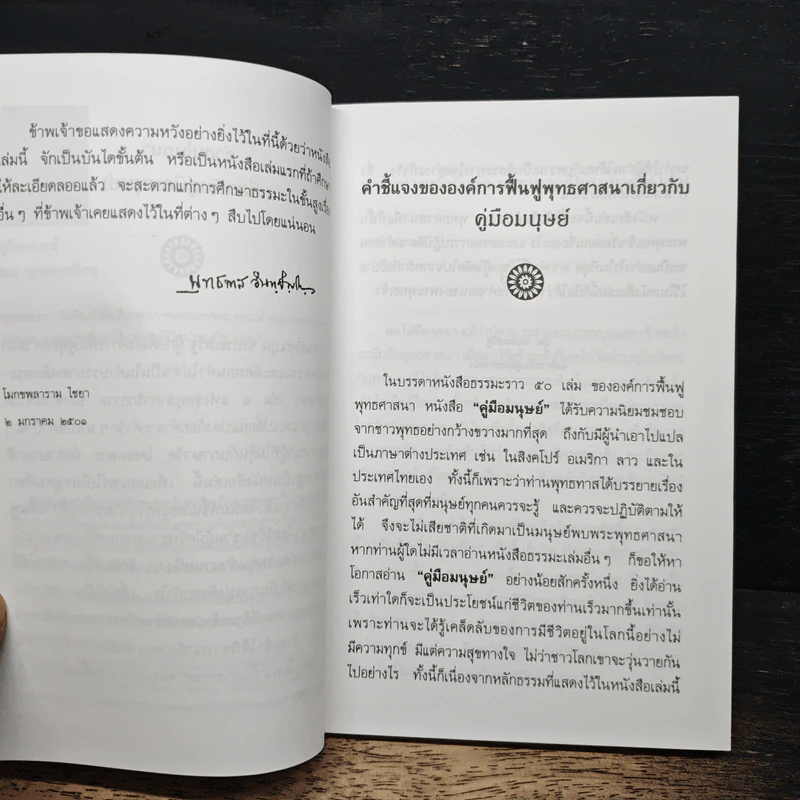 ข้าพเจ้าขอแสดงความหวังอย่างยิ่งไว้ในที่นี้ด้วยว่าหนังสือ
เล่มนี้ จักเป็นบันไดขั้นต้น หรือเป็นหนังสือเล่มแรกที่ถ้าศึกษา
ให้ละเอียดลออแล้ว จะสะดวกแก่การศึกษาธรรมะในขั้นสูงเรื่อง
อื่นๆ ที่ข้าพเจ้าเคยแสดงไว้ในที่ต่างๆ สืบไปโดยแน่นอน
พุทธทาส อินทปัญโญ
โมกขพลาราม ไชยา
๒ มกราคม ๒๕๐๑
คำชี้แจงขององค์การฟื้นฟูพุทธศาสนาเกี่ยวกับ
คู่มือมนุษย์
ในบรรดาหนังสือธรรมะราว ๕๐ เล่ม ขององค์การฟื้นฟู
พุทธศาสนา หนังสือ “คู่มือมนุษย์” ได้รับความนิยมชมชอบ
จากชาวพุทธอย่างกว้างขวางมากที่สุด ถึงกับมีผู้นำเอาไปแปล
เป็นภาษาต่างประเทศ เช่น ในสิงคโปร์ อเมริกา ลาว และใน
ประเทศไทยเอง ทั้งนี้ก็เพราะว่าท่านพุทธทาสได้บรรยายเรื่อง
อันสำคัญที่สุดที่มนุษย์ทุกคนควรจะรู้ และควรจะปฏิบัติตามให้
ได้ จึงจะไม่เสียชาติที่เกิดมาเป็นมนุษย์พบพระพุทธศาสนา
หากท่านผู้ใดไม่มีเวลาอ่านหนังสือธรรมะเล่มอื่นๆ ก็ขอให้หา
โอกาสอ่าน “คู่มือมนุษย์” อย่างน้อยสักครั้งหนึ่ง ยิ่งได้อ่าน
เร็วเท่าใดก็จะเป็นประโยชน์แก่ชีวิตของท่านเร็วมากขึ้นเท่านั้น
เพราะท่านจะได้รู้เคล็ดลับของการมีชีวิตอยู่ในโลกนี้อย่างไม่
มีความทุกข์ มีแต่ความสุขทางใจ ไม่ว่าชาวโลกเขาจะวุ่นวายกัน
ไปอย่างไร ทั้งนี้ก็เนื่องจากหลักธรรมที่แสดงไว้ในหนังสือเล่มนี้